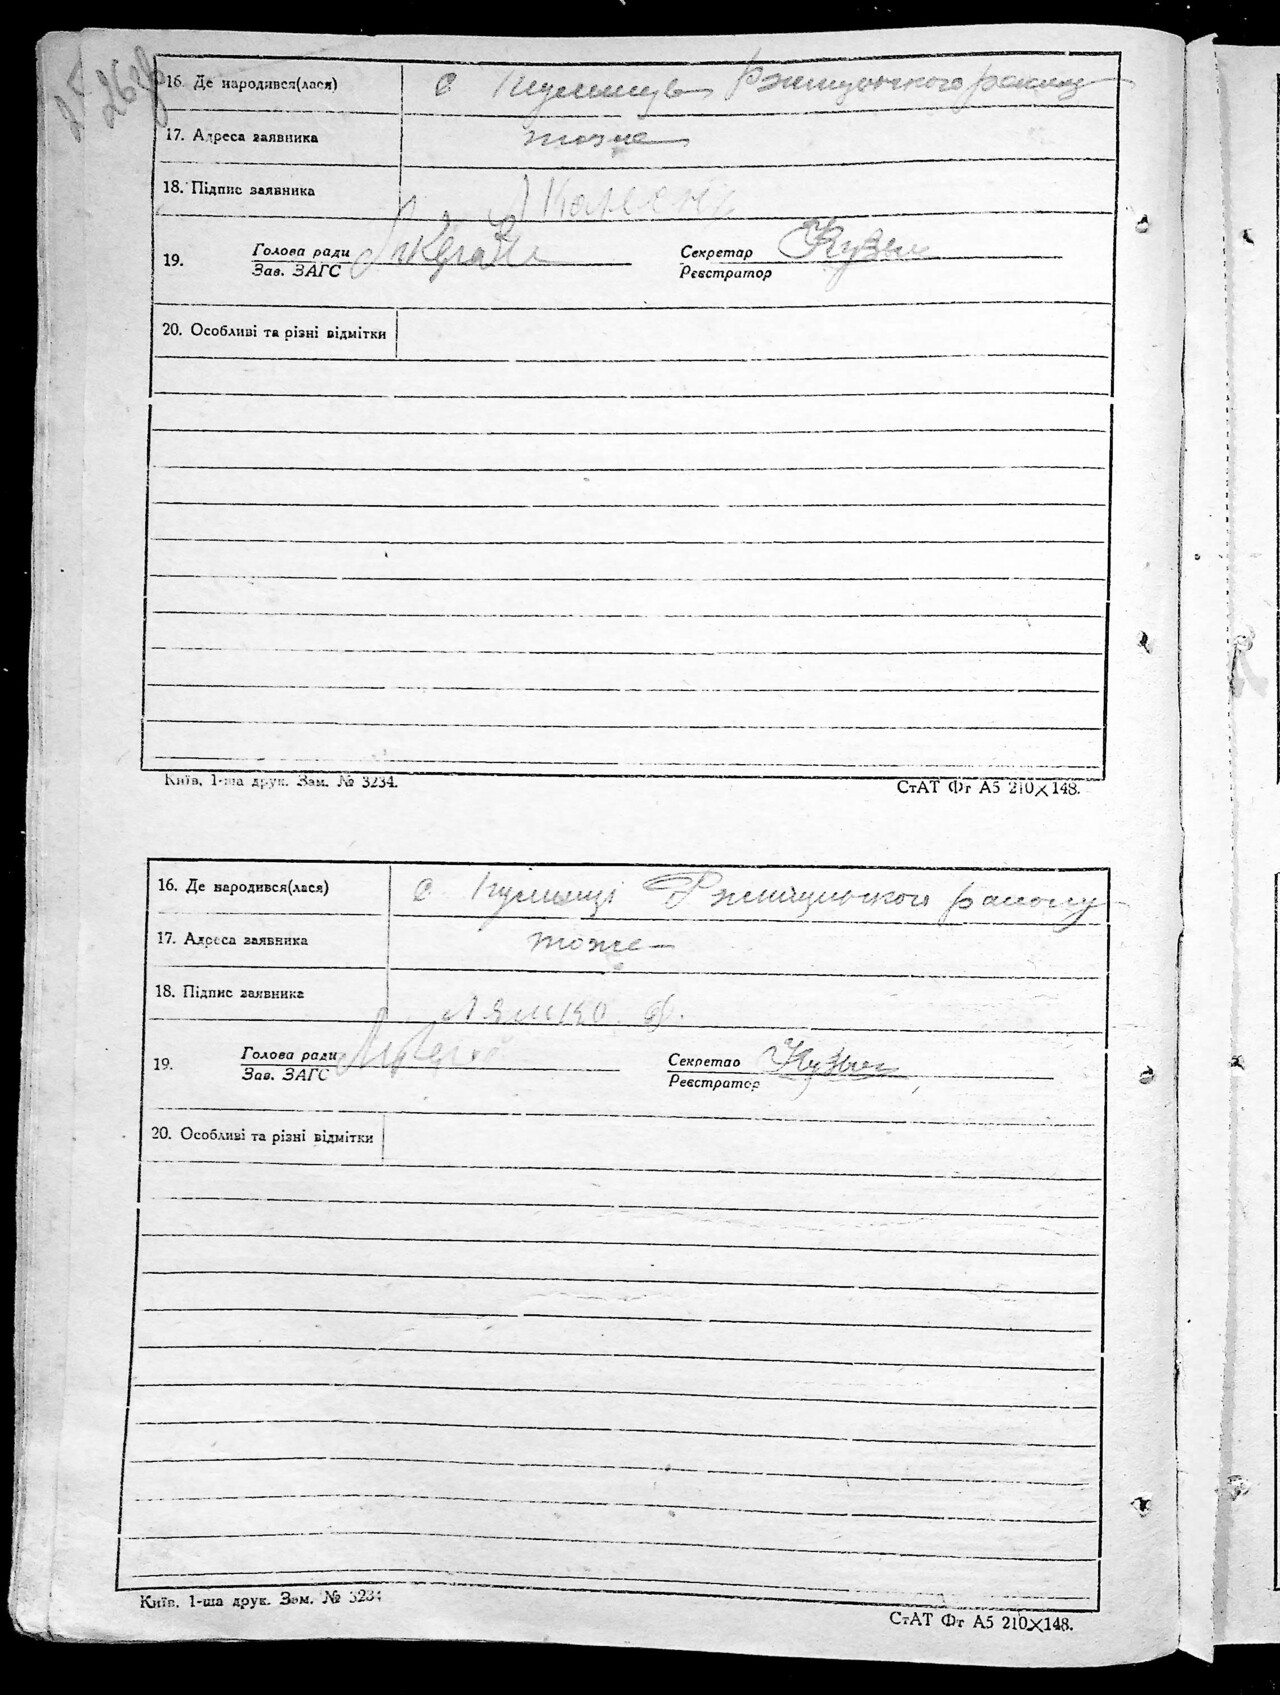 16. Де народився(лася) с Ржищінського району
17. Адреса заявника тоже
18. Підпис заявника
19. Голова ради Секретар
Зав. ЗАГС Реєстратор
20. Особливі та різні відмітки
Київ, 1-ша друк. Зам. № 3234. СтАТ Фт А5 210×148.
16. Де народився(лася) с Ржищінського району
17. Адреса заявника тоже
18. Підпис заявника Ляшко
19. Голова ради Секретар
Зав. ЗАГС Реєстратор
20. Особливі та різні відмітки
Київ, 1-ша друк. Зам. № 3234 СтАТ Фт А5 210×148.